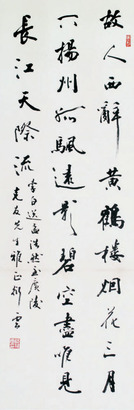 故人西辭黄鶴樓烟花三月
下揚州孤颿遠影碧空盡唯見
長江天際流
李白送孟浩然之廣陵
克友先生雅正舒雲